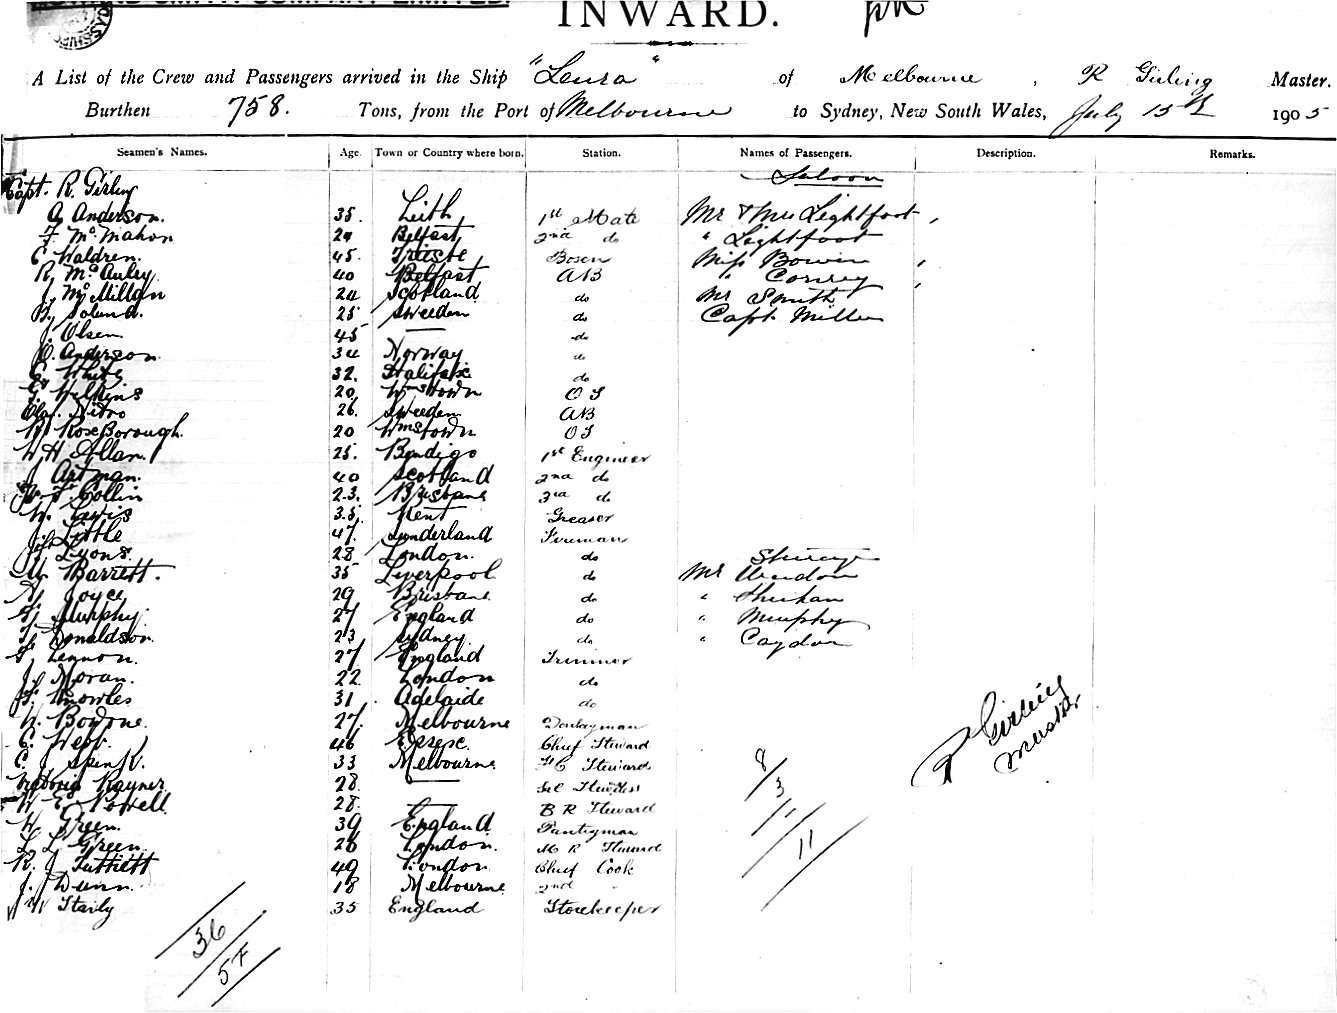 INWARD.
A List of the Crew and Passengers arrived in the Ship "Leura" of Melbourne, R Girling Master.
Burthen 758. Tons, from the Port of Melbourne to Sydney, New South Wales, July 15th 1905
Seamen's Names. Age. Town or Country where born. Station. Names of Passengers. Description. Remarks.
Saloon
Capt. R. Girling
A Anderson. 35. Leith 1st Mate Mr & Mrs Lightfoot
F McMahon Belfast 2nd do " Lightfoot
C Waldren. 45. Trieste Bosen Miss Bowen
R. McAuley 40 Belfast AB " Conrey
J McMillan 24 Scotland do Mr Smith
B. Solund. 25 Sweeden do Capt Miller
J. Olsen 45 — do
O. Anderson 34 Norway do
C White 32. Halifax do
G. Wilkins 20 Wmstown O S
Olaf. Nitro 26. Sweeden AB
R RoseBorough. 20 Wmstown O S
W H Allan. 25. Bendigo 1st Engineer
J Artman. 40 Scotland 2nd do
Collin 23. Brisbane 3rd do
W. Lewis 35. Kent Greaser
J. Little 47. Sunderland Fireman
Jas Lyons. 28 London. do Steerage
M Barrett. 35 Liverpool do Mr
A Joyce 29 Brisbane do "
Murphy. 27 England do " Murphy
Donaldson. 23 Sydney. do "
Lennon. 27 England Trimmer
J. Moran. 22 London do
Knowles 31 Adelaide do
W. Bowne. 27. Melbourne Donkeyman
E. Webb. 46 Essex. Chief Steward
C J Spink. 33 Melbourne F C Steward
Rayner 28. — Sal Stewdess
W E Powell 28. — B R Steward
W Green. 39 England Pantryman
L L Green. 26 London. M R Steward
R. J Tuttiett 49 London Chief Cook
J. Dunn. 18 Melbourne 2nd "
Starly 35 England Storekeeper
R Girling
Master
8/3/11
11
36
57